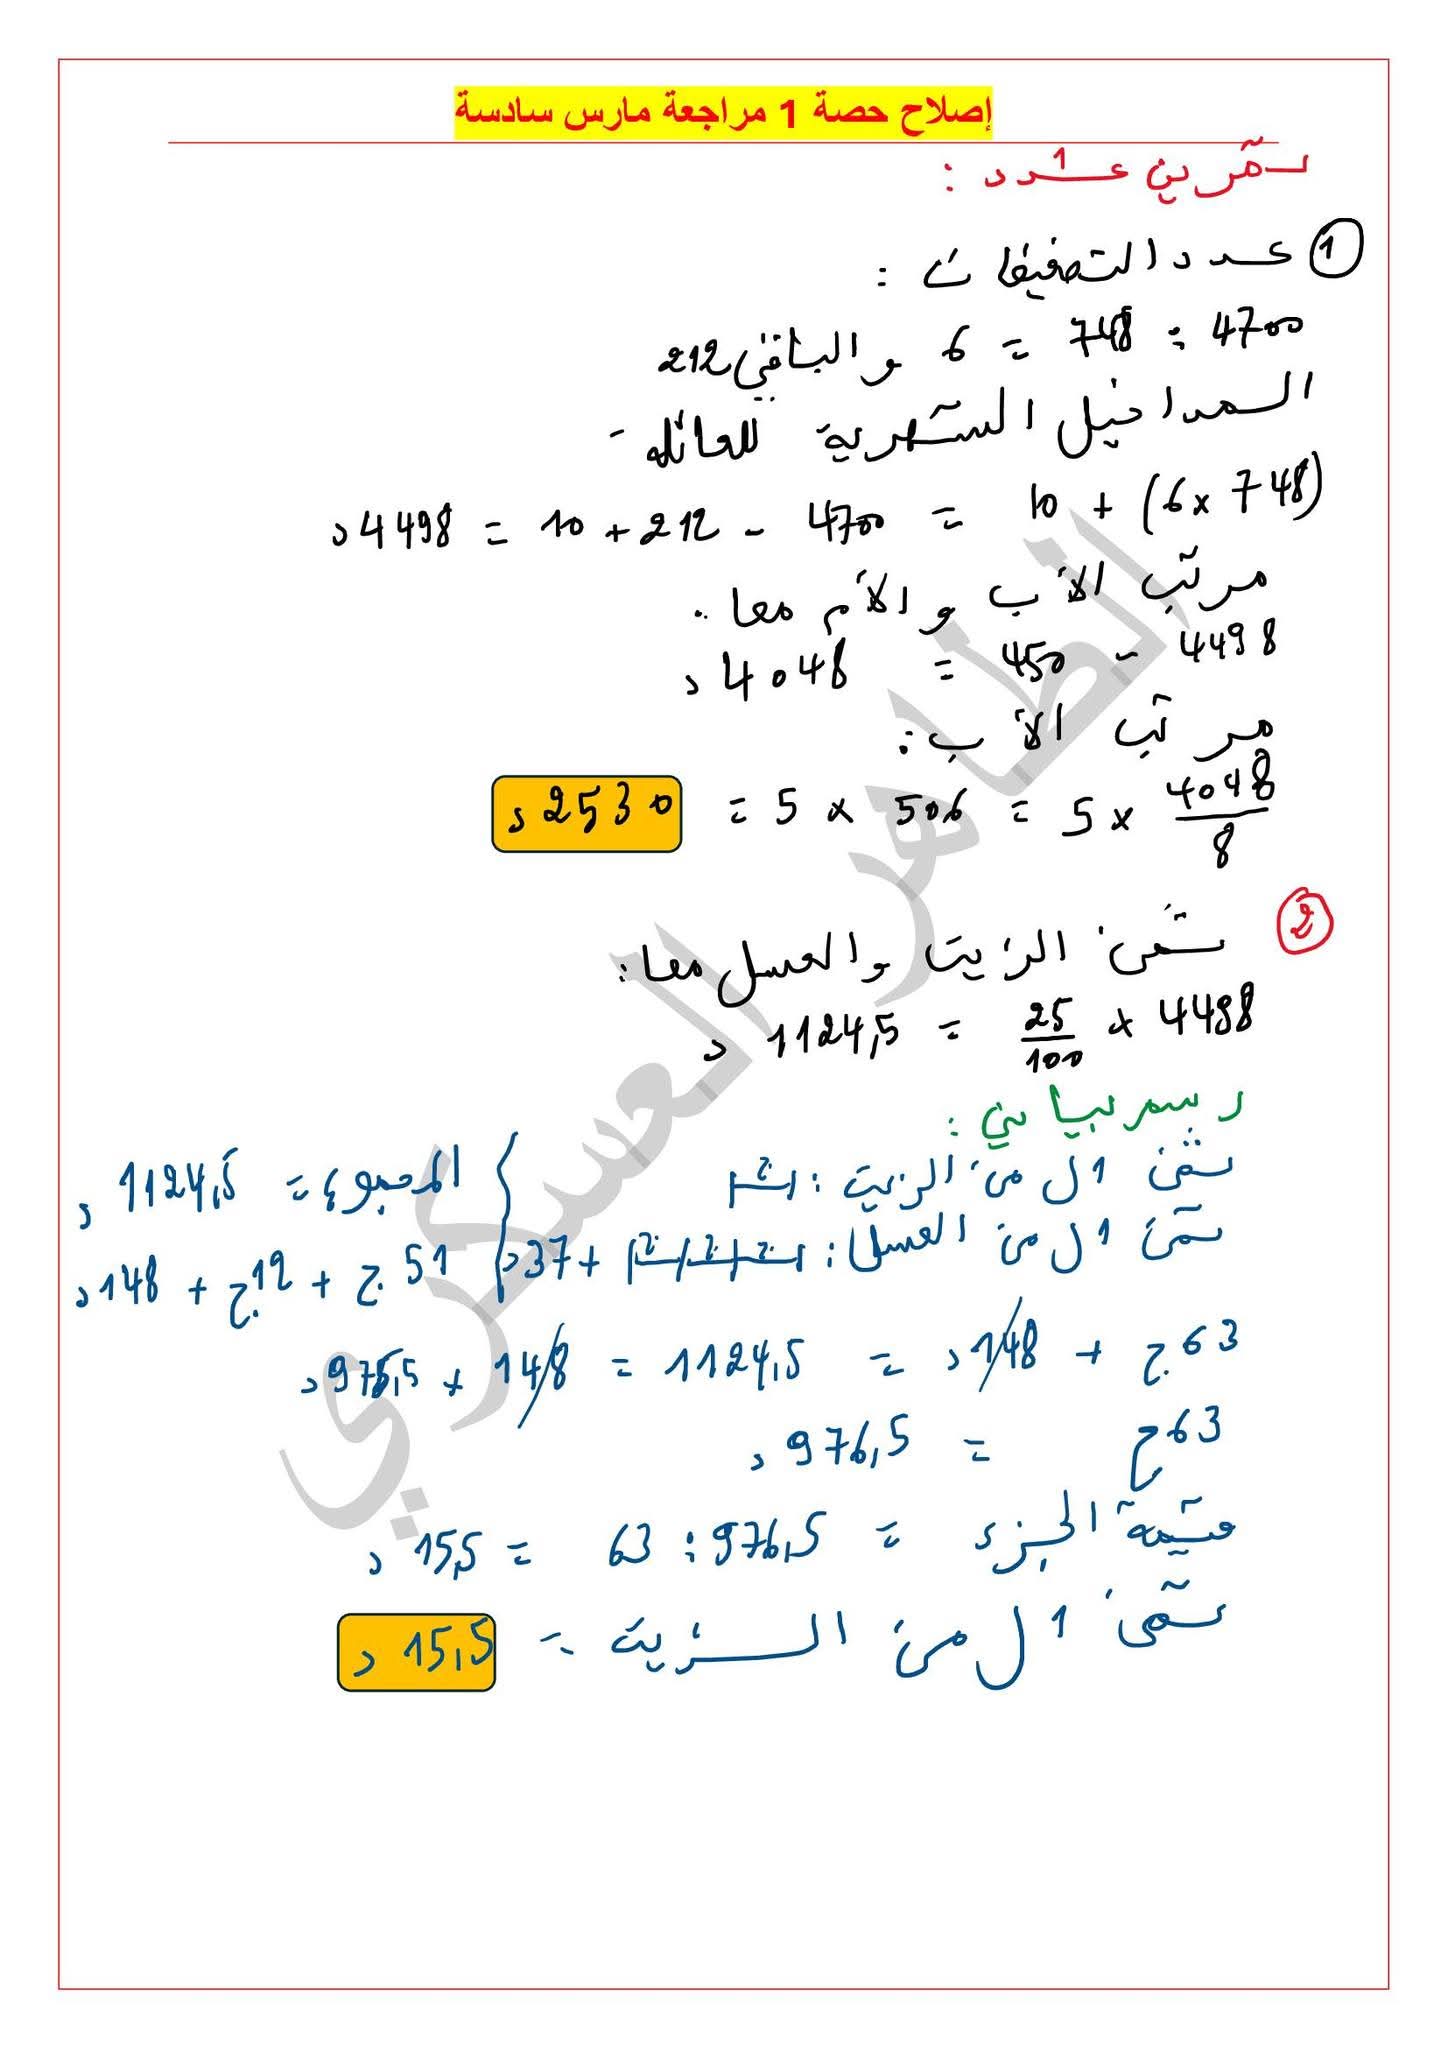 إصلاح حصة 1 مراجعة مارس سادسة
تمرين عدد 1 :
1 عدد التصفيفات :
4700 : 748 = 6 والباقي 212
المداخيل الشهرية للعائلة -
(748 x 6) + 10 = 4700 - 212 + 10 = 4498 د
مرتب الأب والأم معا :
4498 - 450 = 4048 د
مرتب الأب :
4048/8 x 5 = 506 x 5 = 2530 د
2 ثمن الزيت والعسل معا :
4498 x 25/100 = 1124,5 د
رسم بياني :
ثمن 1 ل من الزيت : ج المجموع = 1124,5 د
ثمن 1 ل من العسل : ج ج ج + 37 د 51 ج + 12 ج + 148 د
63 ج + 148 د = 1124,5 = 148 + 976,5 د
63 ج = 976,5 د
قيمة الجزء = 976,5 : 63 = 15,5 د
ثمن 1 ل من الزيت = 15,5 د
الطاهر العسكري